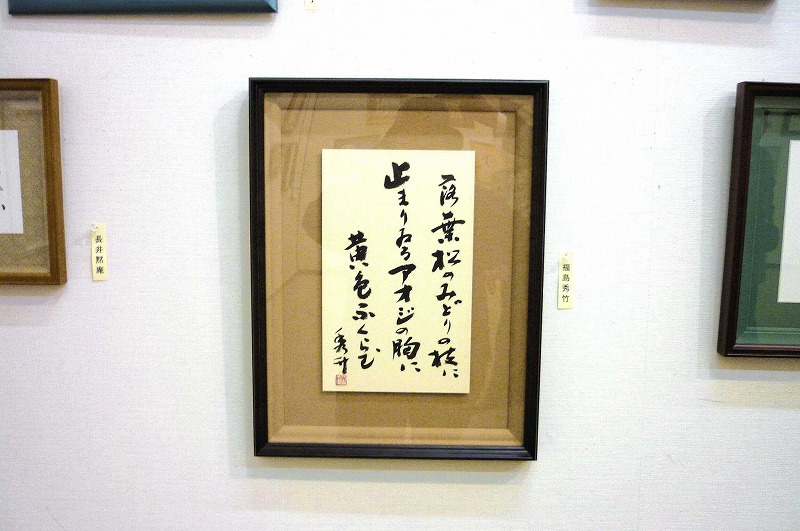 落葉松のみどりの枝に
止まりゐるアオジの胸に
黄色ふくらむ
秀竹
福島秀竹
長井黙庵